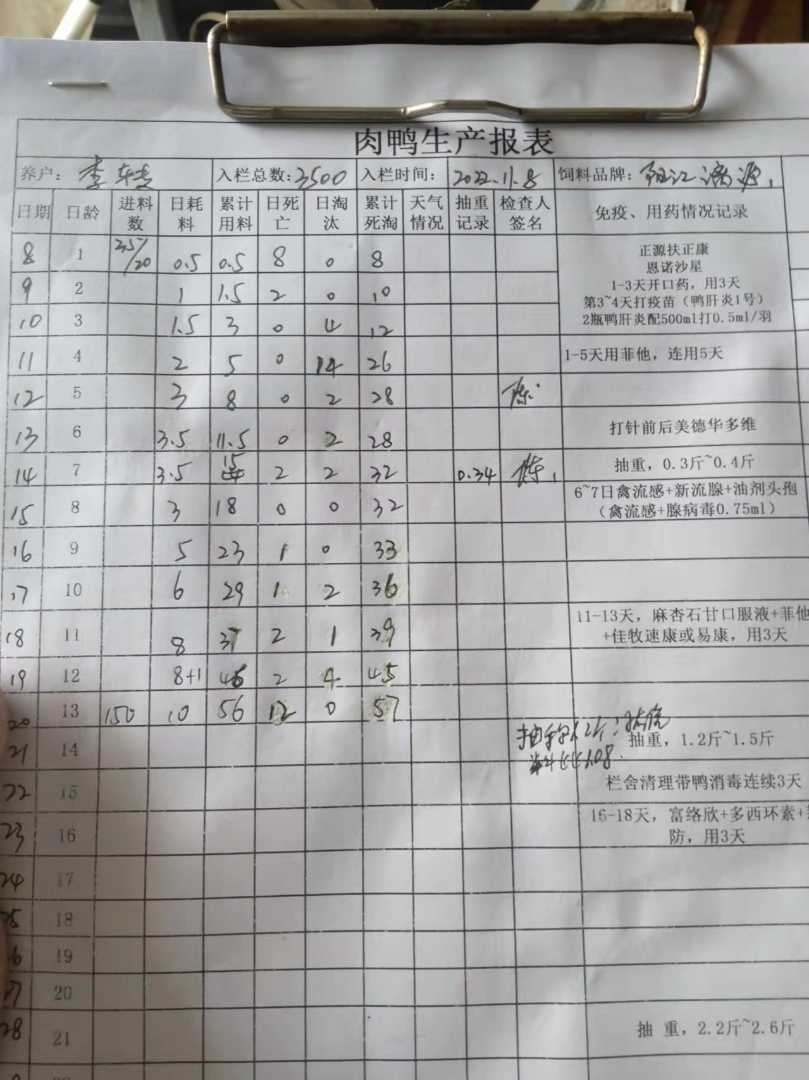 肉鸭生产报表
养户: 李 入栏总数: 3500 入栏时间: 2022.11.8 饲料品牌: 阳江
日期 日龄 进料数 日耗料 累计用料 日死亡 日淘汰 累计死淘 天气情况 抽重记录 检查人签名 免疫、用药情况记录
8 1 0.5 0.5 8 0 8
正源扶正康
恩诺沙星
1-3天开口药，用3天
第3~4天打疫苗（鸭肝炎1号）
2瓶鸭肝炎配500ml打0.5ml/羽
9 2 1 1.5 2 0 10
10 3 1.5 3 0 4 12
11 4 2 5 0 14 26 1-5天用菲他，连用5天
12 5 3 8 0 2 28 陈
13 6 3.5 11.5 0 2 28 打针前后美德华多维
14 7 3.5 15 2 2 32 0.34 陈 抽重，0.3斤~0.4斤
15 8 3 18 0 0 32 6~7日禽流感+新流腺+油剂头孢
（禽流感+腺病毒0.75ml）
16 9 5 23 1 0 33
17 10 6 29 1 2 36
18 11 8 37 2 1 39 11-13天，麻杏石甘口服液+菲他
+佳牧速康或易康，用3天
19 12 8+1 46 2 4 45
20 13 150 10 56 12 0 57
21 14 抽重，1.2斤~1.5斤
1.08
22 15 栏舍清理带鸭消毒连续3天
23 16 16-18天，富络欣+多西环素+
防，用3天
24 17
25 18
6 19
7 20
28 21 抽 重，2.2斤~2.6斤